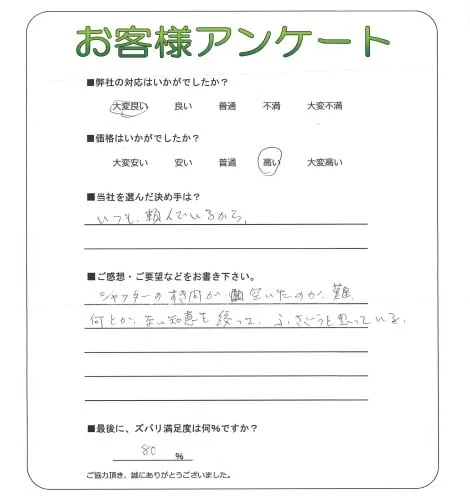 お客様アンケート
■弊社の対応はいかがでしたか?
大変良い 良い 普通 不満 大変不満
■価格はいかがでしたか?
大変安い 安い 普通 高い 大変高い
■当社を選んだ決め手は?
いつも、頼んでいるから、
■ご感想・ご要望などをお書き下さい。
シャッターのすき間が 空いたのが、難、
何とか、ない知恵を絞って、ふさごうと思っている。
■最後に、ズバリ満足度は何%ですか?
80 %
ご協力頂き、誠にありがとうございました。